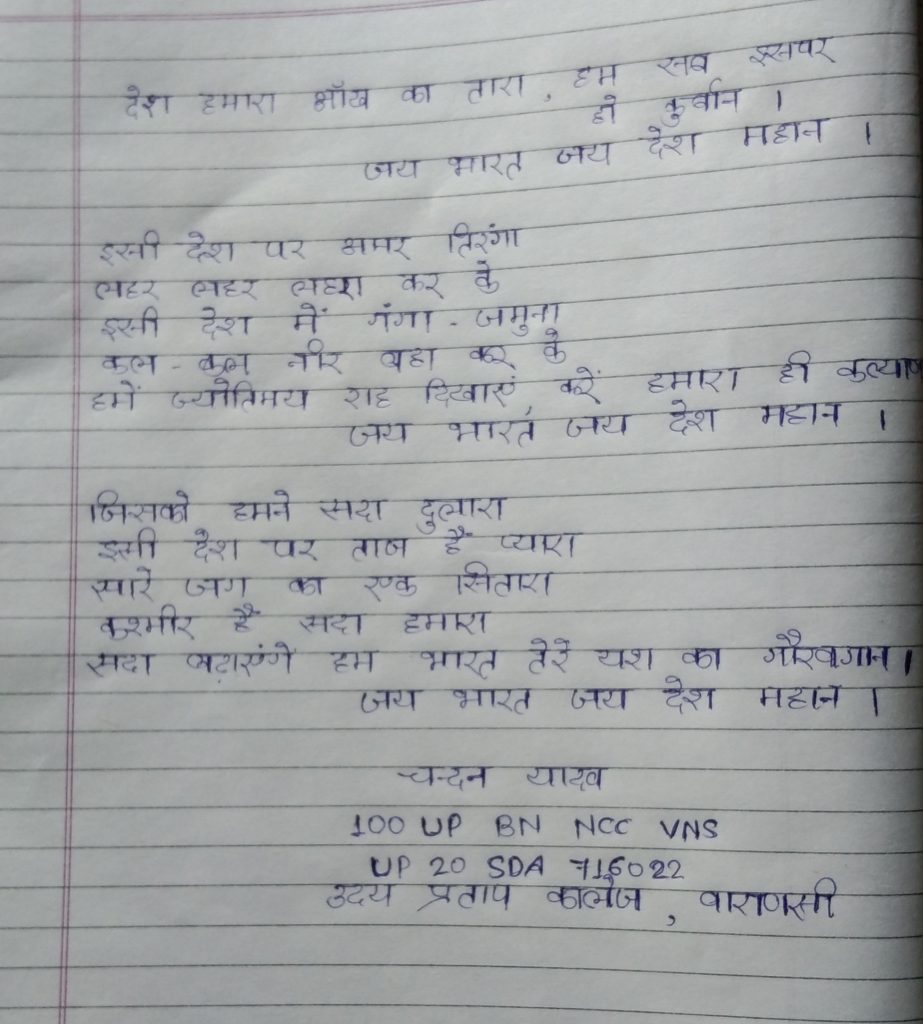 देश हमारा आँख का तारा, हम सब इसपर
हो कुर्बान ।
जय भारत जय देश महान ।
इसी देश पर अमर तिरंगा
लहर लहर लहरा कर के
इसी देश में गंगा - जमुना
कल - कल नीर बहा कर के
हमें ज्योतिमय राह दिखाएं करें हमारा ही कल्याण
जय भारत जय देश महान ।
जिसको हमने सदा दुलारा
इसी देश पर ताज है प्यारा
सारे जग का एक सितारा
कश्मीर है सदा हमारा
सदा बढ़ाएंगे हम भारत तेरे यश का गौरवगान ।
जय भारत जय देश महान ।
चन्दन यादव
100 UP BN NCC VNS
UP 20 SDA 716022
उदय प्रताप कालेज, वाराणसी